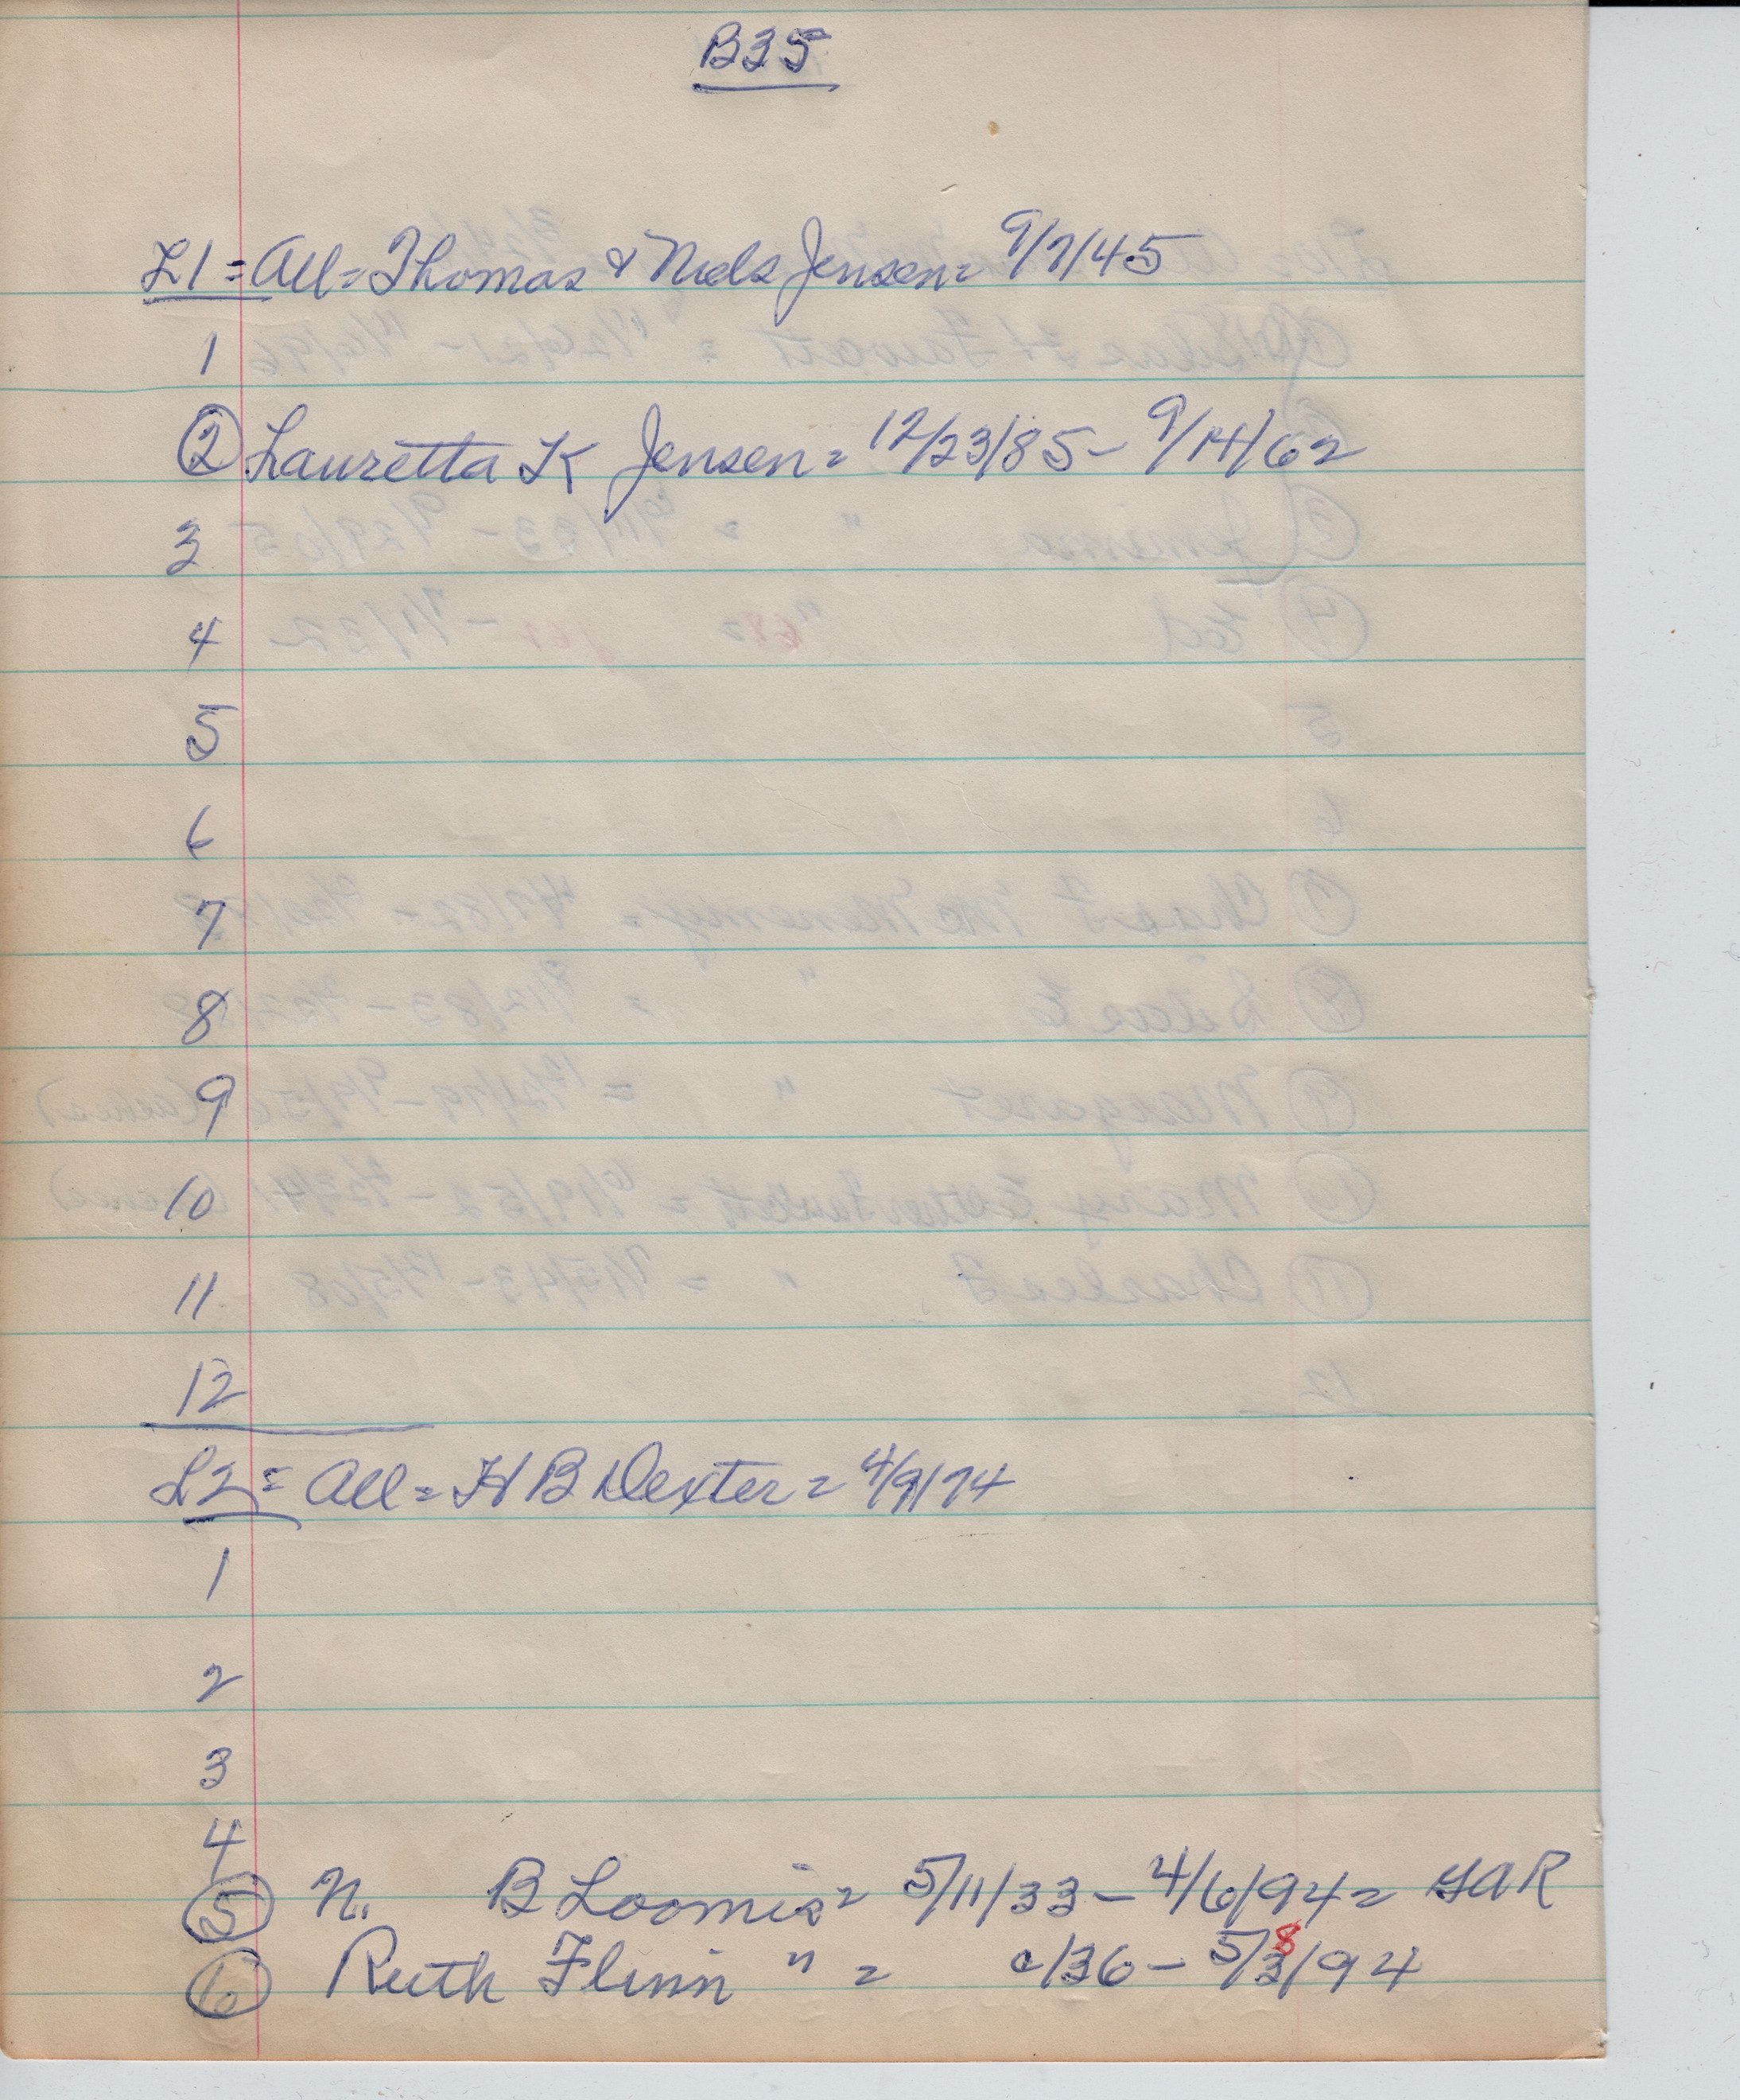 B35
L1 = All = Thomas & Niels Jensen = 9/7/45
1
2 Lauretta K Jensen = 12/23/85 - 9/14/62
3
4
5
6
7
8
9
10
11
12
L2 = All = H B Dexter = 4/9/74
1
2
3
4
5 N. B Loomis = 5/11/33 - 4/6/94 = GAR
6 Ruth Flinn " = c/36 - 5/3/94
8